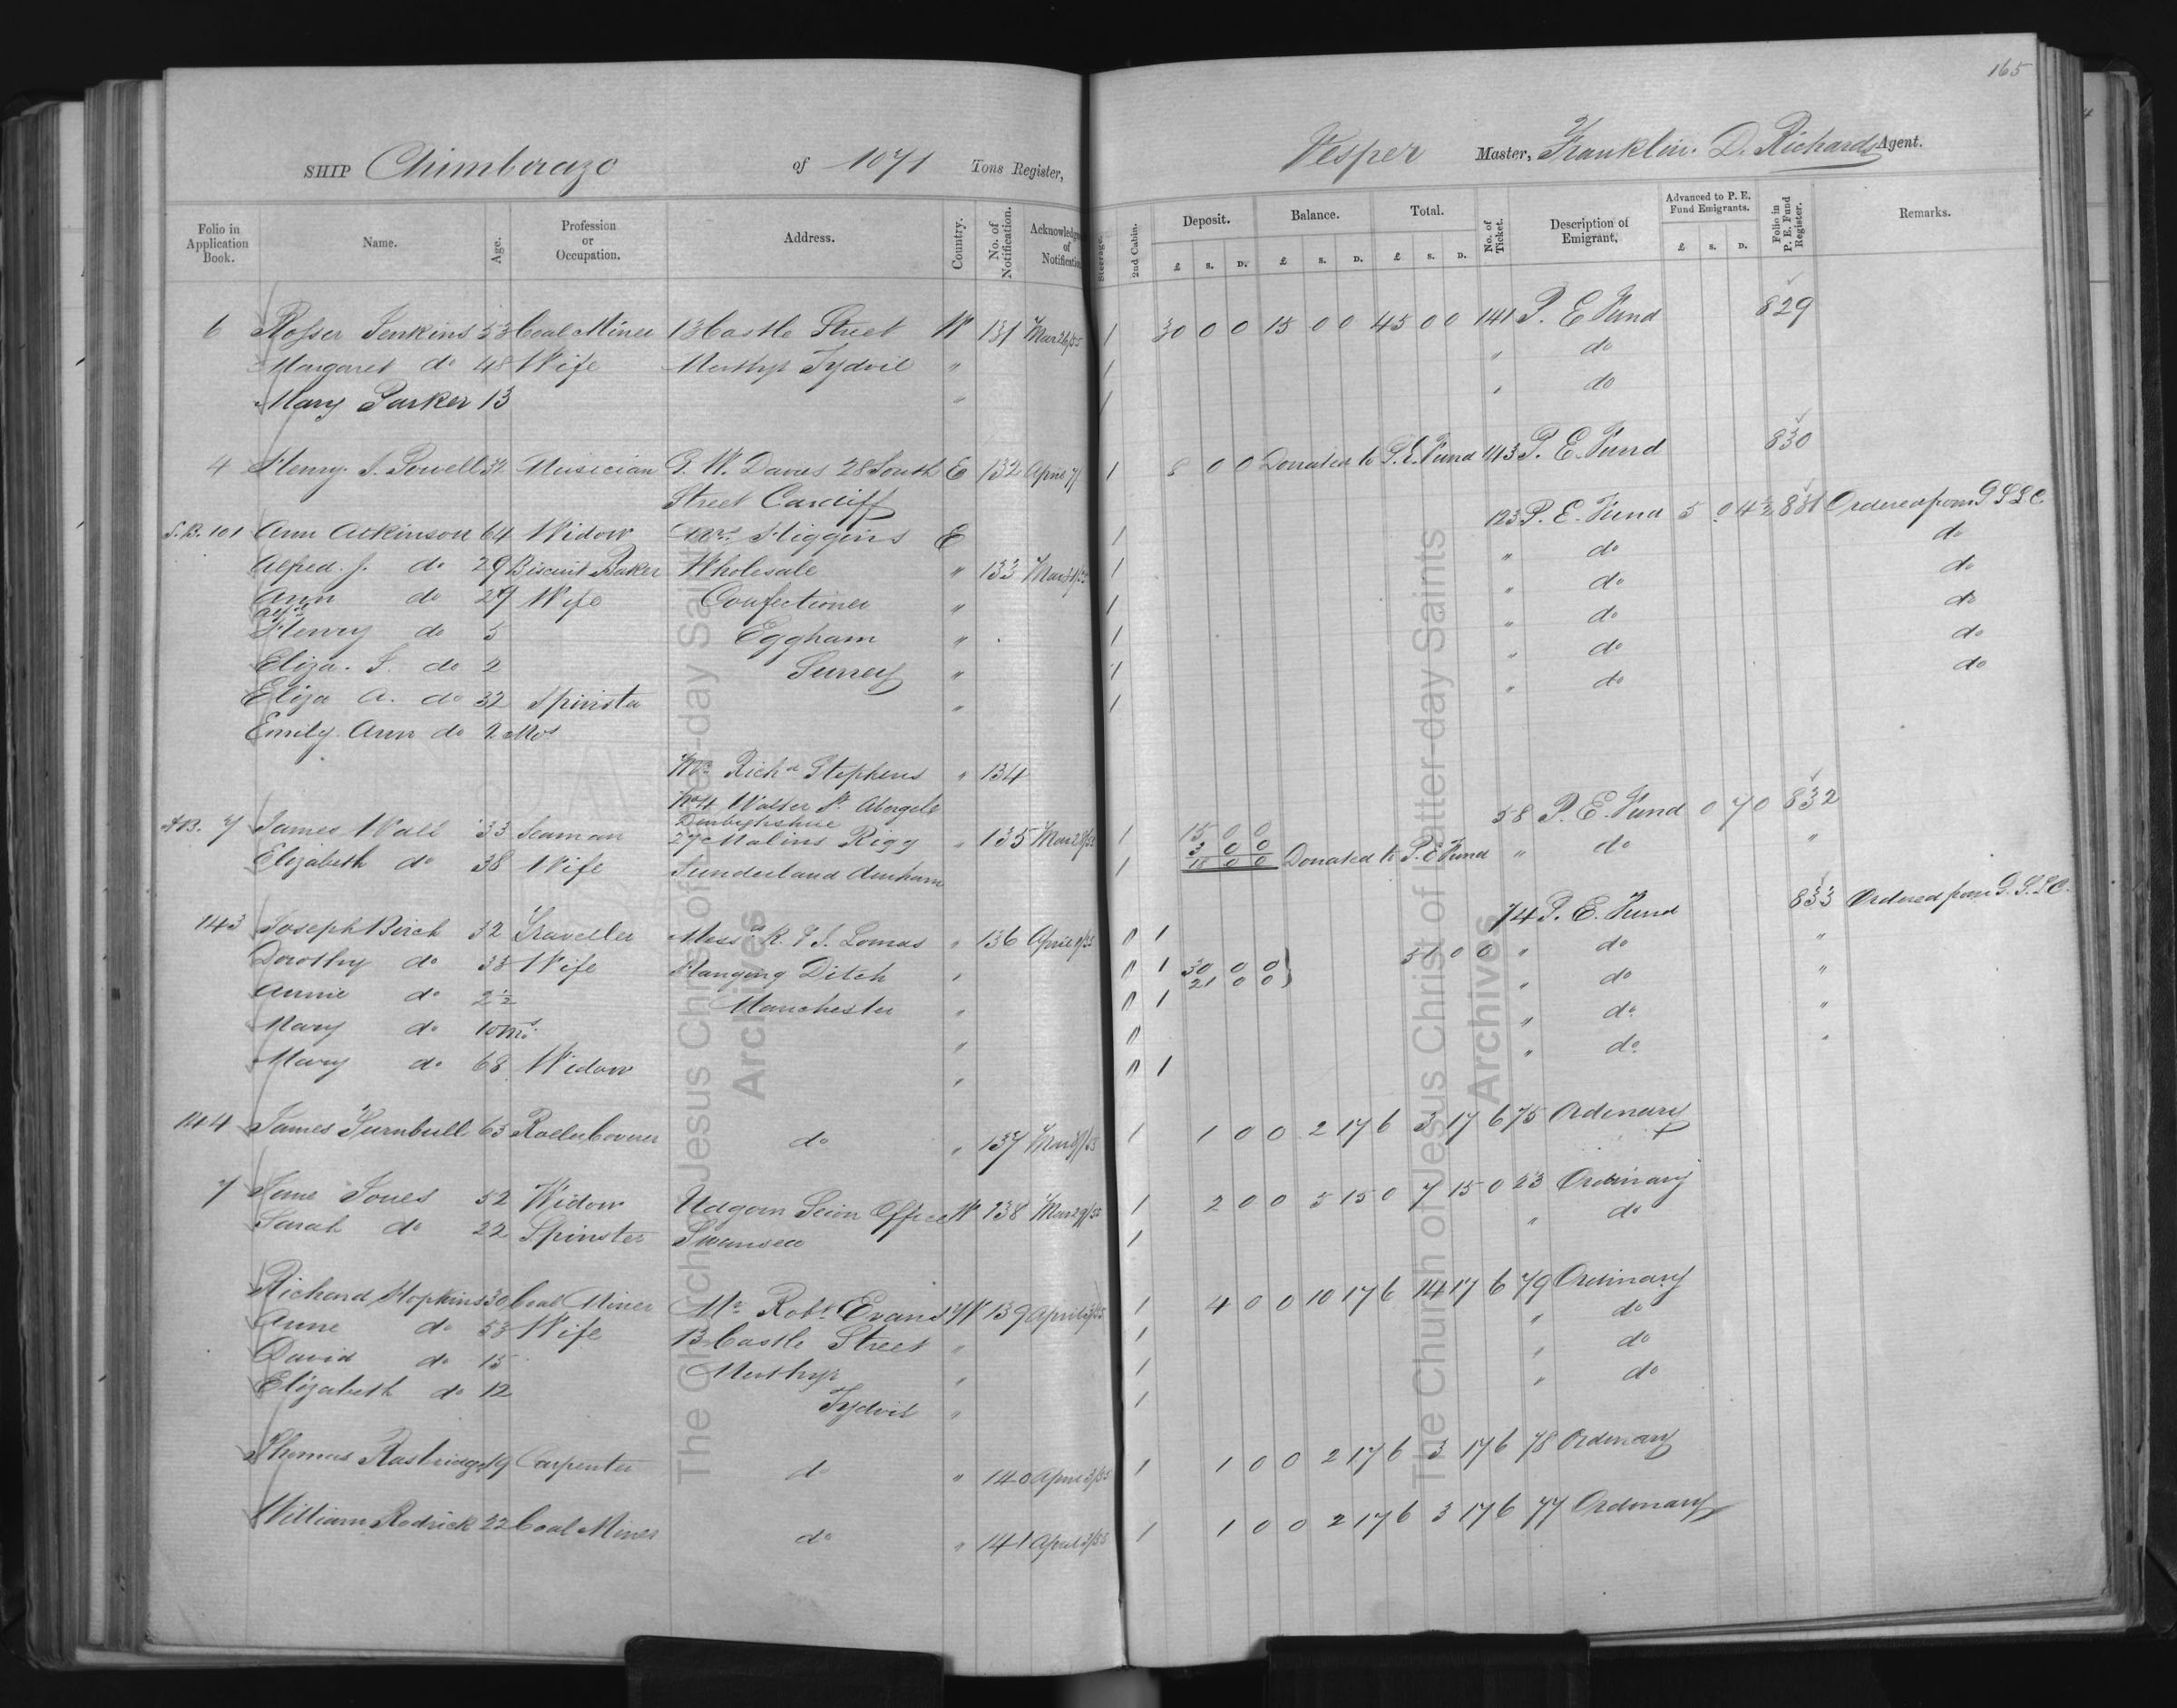 165
SHIP Chimborazo of 1071 Tons Register, Vesper Master, Franklin D. Richards Agent.
Folio in Application Book. Name. Age. Profession or Occupation. Address. Country. No. of Notification. Acknowledgm of Notification Steerage. 2nd Cabin. Deposit. £ S. D. Balance. £ S. D. Total. £ S. D. No. of Ticket. Description of Emigrant. Advanced to P. E. Fund Emigrants. £ S. D. Folio in P. E. Fund Register. Remarks.
6 Rosser Jenkins 53 Coal Miner 13 Castle Street W 131 Mar 26/55 1 30 0 0 15 0 0 45 0 0 141 P. E. Fund 829
Margaret do 48 Wife Merthyr Tydvil " 1 " do
Mary Parker 13 " 1 " do
4 Henry J. Powell 32 Musician G. W. Davies 28 South E 132 April 7/ 1 8 0 0 Donated to P. E. Fund 143 P. E. Fund 830
Street Cardiff
S.B. 101 Ann Atkinson 64 Widow Mrs Higgins E 1 123 P. E. Fund 5 0 4½ 831 Ordered from G S L C.
Alfred. J. do 29 Biscuit Baker Wholesale " 133 Mar 31/55 1 " do do
Ann do 27 Wife Confectioner " 1 " do do
Alfd Henry do 5 Eggham " 1 " do do
Eliza. S. do 2 Surrey " 1 " do do
Eliza A. do 32 Spinster " 1 " do do
Emily Ann do 2 Mos
Mr Richd Stephens " 134
Walter St Abergele
Denbighshire
A.B. 7 James Wall 33 Seaman 27 Malins Rigg " 135 Mar 28/55 1 15 0 0 58 P. E. Fund 0 7 0 832
3 0 0
Elizabeth do 38 Wife Sunderland Durham 1 18 0 0 Donated to P. E. Fund " do "
143 Joseph Birch 32 Traveller Messrs R. & J. Lomas " 136 April 9/55 1 74 P. E. Fund 833 Ordered from G. S. L C.
Dorothy do 33 Wife Hanging Ditch " 1 30 0 0 } 51 0 0 " do "
21 0 0
Annie do 2½ Manchester " 1 " do "
Mary do 10 Mos " " do "
Mary do 68 Widow " 1 " do "
144 James Turnbull 63 Roller Coverer do " 137 Mar 1 1 0 0 2 17 6 3 17 6 75 Ordinary
7 Jane Jones 52 Widow Udgorn Seion Office W 138 Mar 29/55 1 2 0 0 5 15 0 7 15 0 23 Ordinary
Sarah do 22 Spinster Swansea 1 " do
Richard Hopkins 50 Coal Miner Mr Robt Evans W 139 April 3/55 1 4 0 0 10 17 6 14 17 6 79 Ordinary
Anne do 53 Wife 13 Castle Street " 1 " do
David do 15 Merthyr " 1 " do
Elizabeth do 12 Tydvil " 1 " do
Thomas Rasbridge 19 Carpenter do " 140 April 3/55 1 1 0 0 2 17 6 3 17 6 78 Ordinary
William Rodrick 22 Coal Miner do " 141 April 3/55 1 1 0 0 2 17 6 3 17 6 77 Ordinary
The Church of Jesus Christ of Latter-day Saints
Archives
The Church of Jesus Christ of Latter-day Saints
Archives